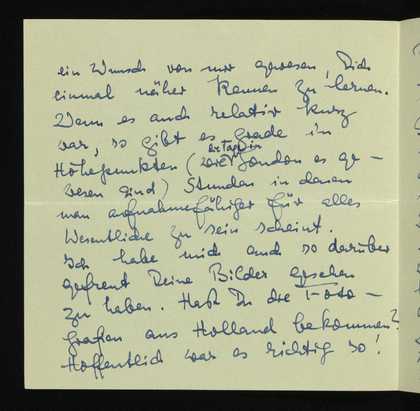 ein Wunsch von mir gewesen, Dich
einmal näher kennen zu lernen.
Wenn es auch relativ kurz
war, so gibt es grade in
Höhepunkten (wie die Tage in London es ge-
wesen sind) Stunden in denen
man aufnahmefähiger für alles
Wesentliche zu sein scheint.
Ich habe mich auch so darüber
gefreut Deine Bilder gesehen
zu haben. Hast Du die Foto-
grafien aus Holland bekommen?
Hoffentlich war es richtig so!